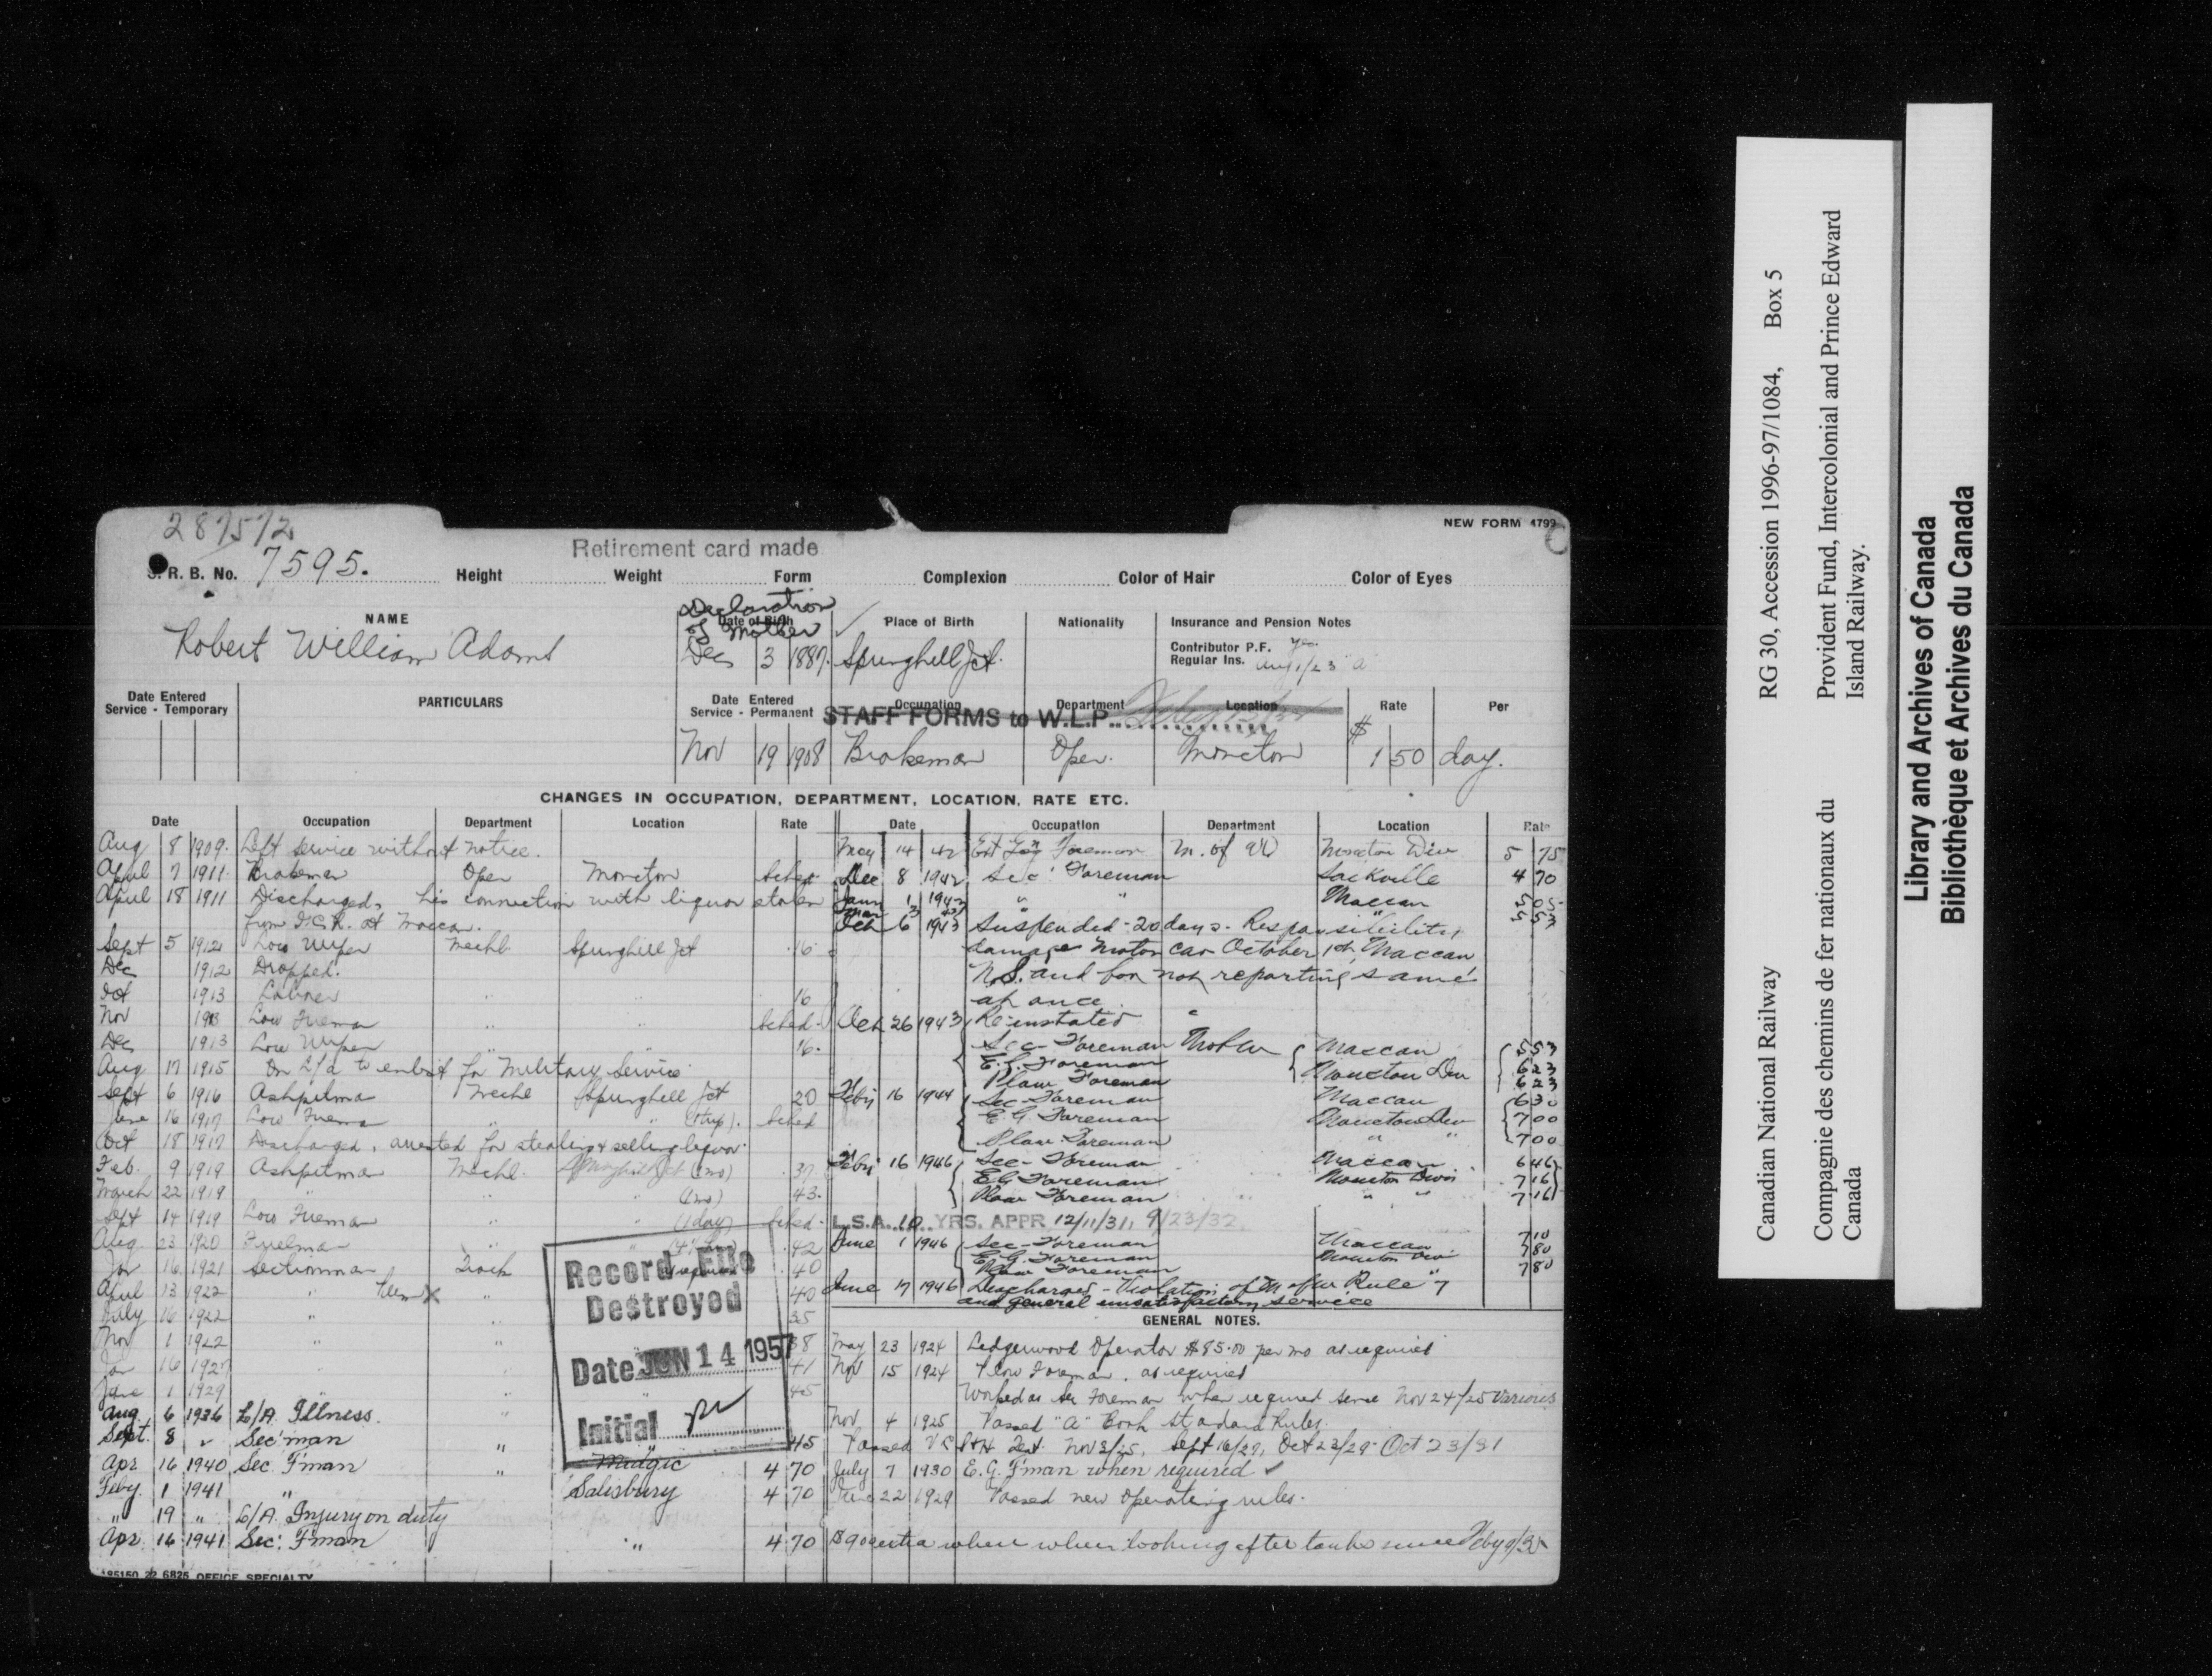 287572
NEW FORM 4799
Retirement card made
S. R. B. No. 7595. Height Weight Form Complexion Color of Hair Color of Eyes
Declaration of Mother
NAME Date of Birth Place of Birth Nationality Insurance and Pension Notes
Robert William Adams Dec 3 1887. Springhill Jct.
Contributor P.F. Yes
Regular Ins. Aug 1/23 "A"
Date Entered Service - Temporary PARTICULARS Date Entered Service - Permanent Occupation Department Location Rate Per
STAFF FORMS to W.L.P.
Nov 19 1908 Brakeman Oper. Moncton $ 1 50 day.
CHANGES IN OCCUPATION, DEPARTMENT, LOCATION, RATE ETC.
Date Occupation Department Location Rate
Aug 8 1909. Left service without notice.
April 7 1911. Brakeman Oper Moncton Sched.
April 18 1911 Discharged, his connection with liquor stolen
from I.C.R. at Maccan.
Sept 5 1912 Loco Wiper Mechl. Springhill Jct .16
Dec 1912 Dropped.
Oct 1913 Laborer " " 16
Nov 1913 Loco Fireman " " Sched.
Dec 1913 Loco Wiper " " 16.
Aug 17 1915 On L/A to enlist for Military Service
Sept 6 1916 Ashpitman Mechl Springhill Jct 20
June 16 1917 Loco Fireman " " Sched
Oct 18 1917 Discharged, arrested for stealing & selling liquor.
Feb. 9 1919 Ashpitman Mechl. Springhill Jct .37
March 22 1919 " " " 43.
Sept 14 1919 Loco Fireman " " (1 day) Sched.
Aug 23 1920 Fuelman " " .42
Jan 16 1921 Sectionman Track .40
April 13 1922 " " 40
July 16 1922 " " 35
Nov 1 1922 " " 38
Jan 16 1927 " " 41
June 1 1929 " " 45
Aug. 6 1936 L/A. Illness. "
Sept. 8 " Sec'man " 45
Apr 16 1940 Sec. F'man " Midgic 4 70
Feby. 1 1941 " Salisbury 4 70
" 19 " L/A. Injury on duty
Apr. 16 1941 Sec. F'man " 4 70
Record File
Destroyed
Date JUN 14 1957
Initial
Date Occupation Department Location Rate
May 14 42 Ext Gang Foreman M. of W Moncton Div 5 75
Dec 8 1942 Sec. Foreman Sackville 4 70
Jan 1 1943 " " Maccan 5 05
5 53
Oct 6 1943 Suspended - 20 days. Responsibility,
damage motor car October 1st, Maccan
N.S. and for not reporting same
at once.
Oct 26 1943 Re-instated
Sec - Foreman M of W Maccan 553
E.G. Foreman Moncton Div 623
Plow Foreman 623
Feby 16 1944 Sec - Foreman Maccan 630
E.G. Foreman Moncton Div 700
Plow Foreman " " 700
Feby 16 1946 Sec - Foreman Maccan 646
E.G. Foreman Moncton Divn 716
Plow Foreman " " 716
L.S.A. 10 YRS. APPR 12/11/31, 9/23/32.
June 1 1946 Sec - Foreman Maccan 710
E.G. Foreman Moncton Divn 780
Plow Foreman " 780
June 17 1946 Discharged - Violation of M of W Rule 7
and general unsatisfactory service
GENERAL NOTES.
May 23 1924 Ledgerwood Operator $85.00 per mo as required
Nov 15 1924 Plow Foreman, as required
Worked as Sec Foreman when required since Nov 24/25 Various
Nov 4 1925 Passed "A" Book Standard Rules.
Passed V C & H Test. Nov 3/25, Sept 16/27, Oct 23/29 - Oct 23/31
July 7 1930 E.G. F'man when required ✓
June 22 1929 Passed new Operating rules.
extra when looking after tanks since Feby
185150 22 6825 OFFICE SPECIALTY
Canadian National Railway RG 30, Accession 1996-97/1084, Box 5
Compagnie des chemins de fer nationaux du Canada Provident Fund, Intercolonial and Prince Edward Island Railway.
Library and Archives of Canada
Bibliothèque et Archives du Canada